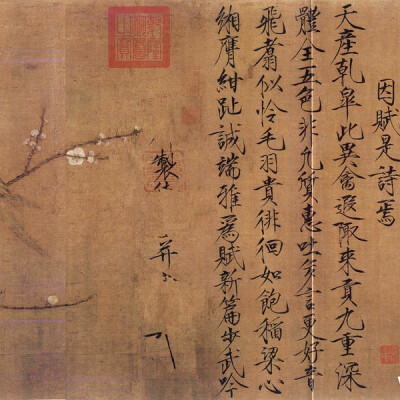 因賦是詩焉
天產乾皐此異禽遐陬來貢九重深
體全五色非凡質惠吐多言更好音
飛翥似憐毛羽貴徘徊如飽稻粱心
緗膺紺趾誠端雅爲賦新篇步武吟
製
并